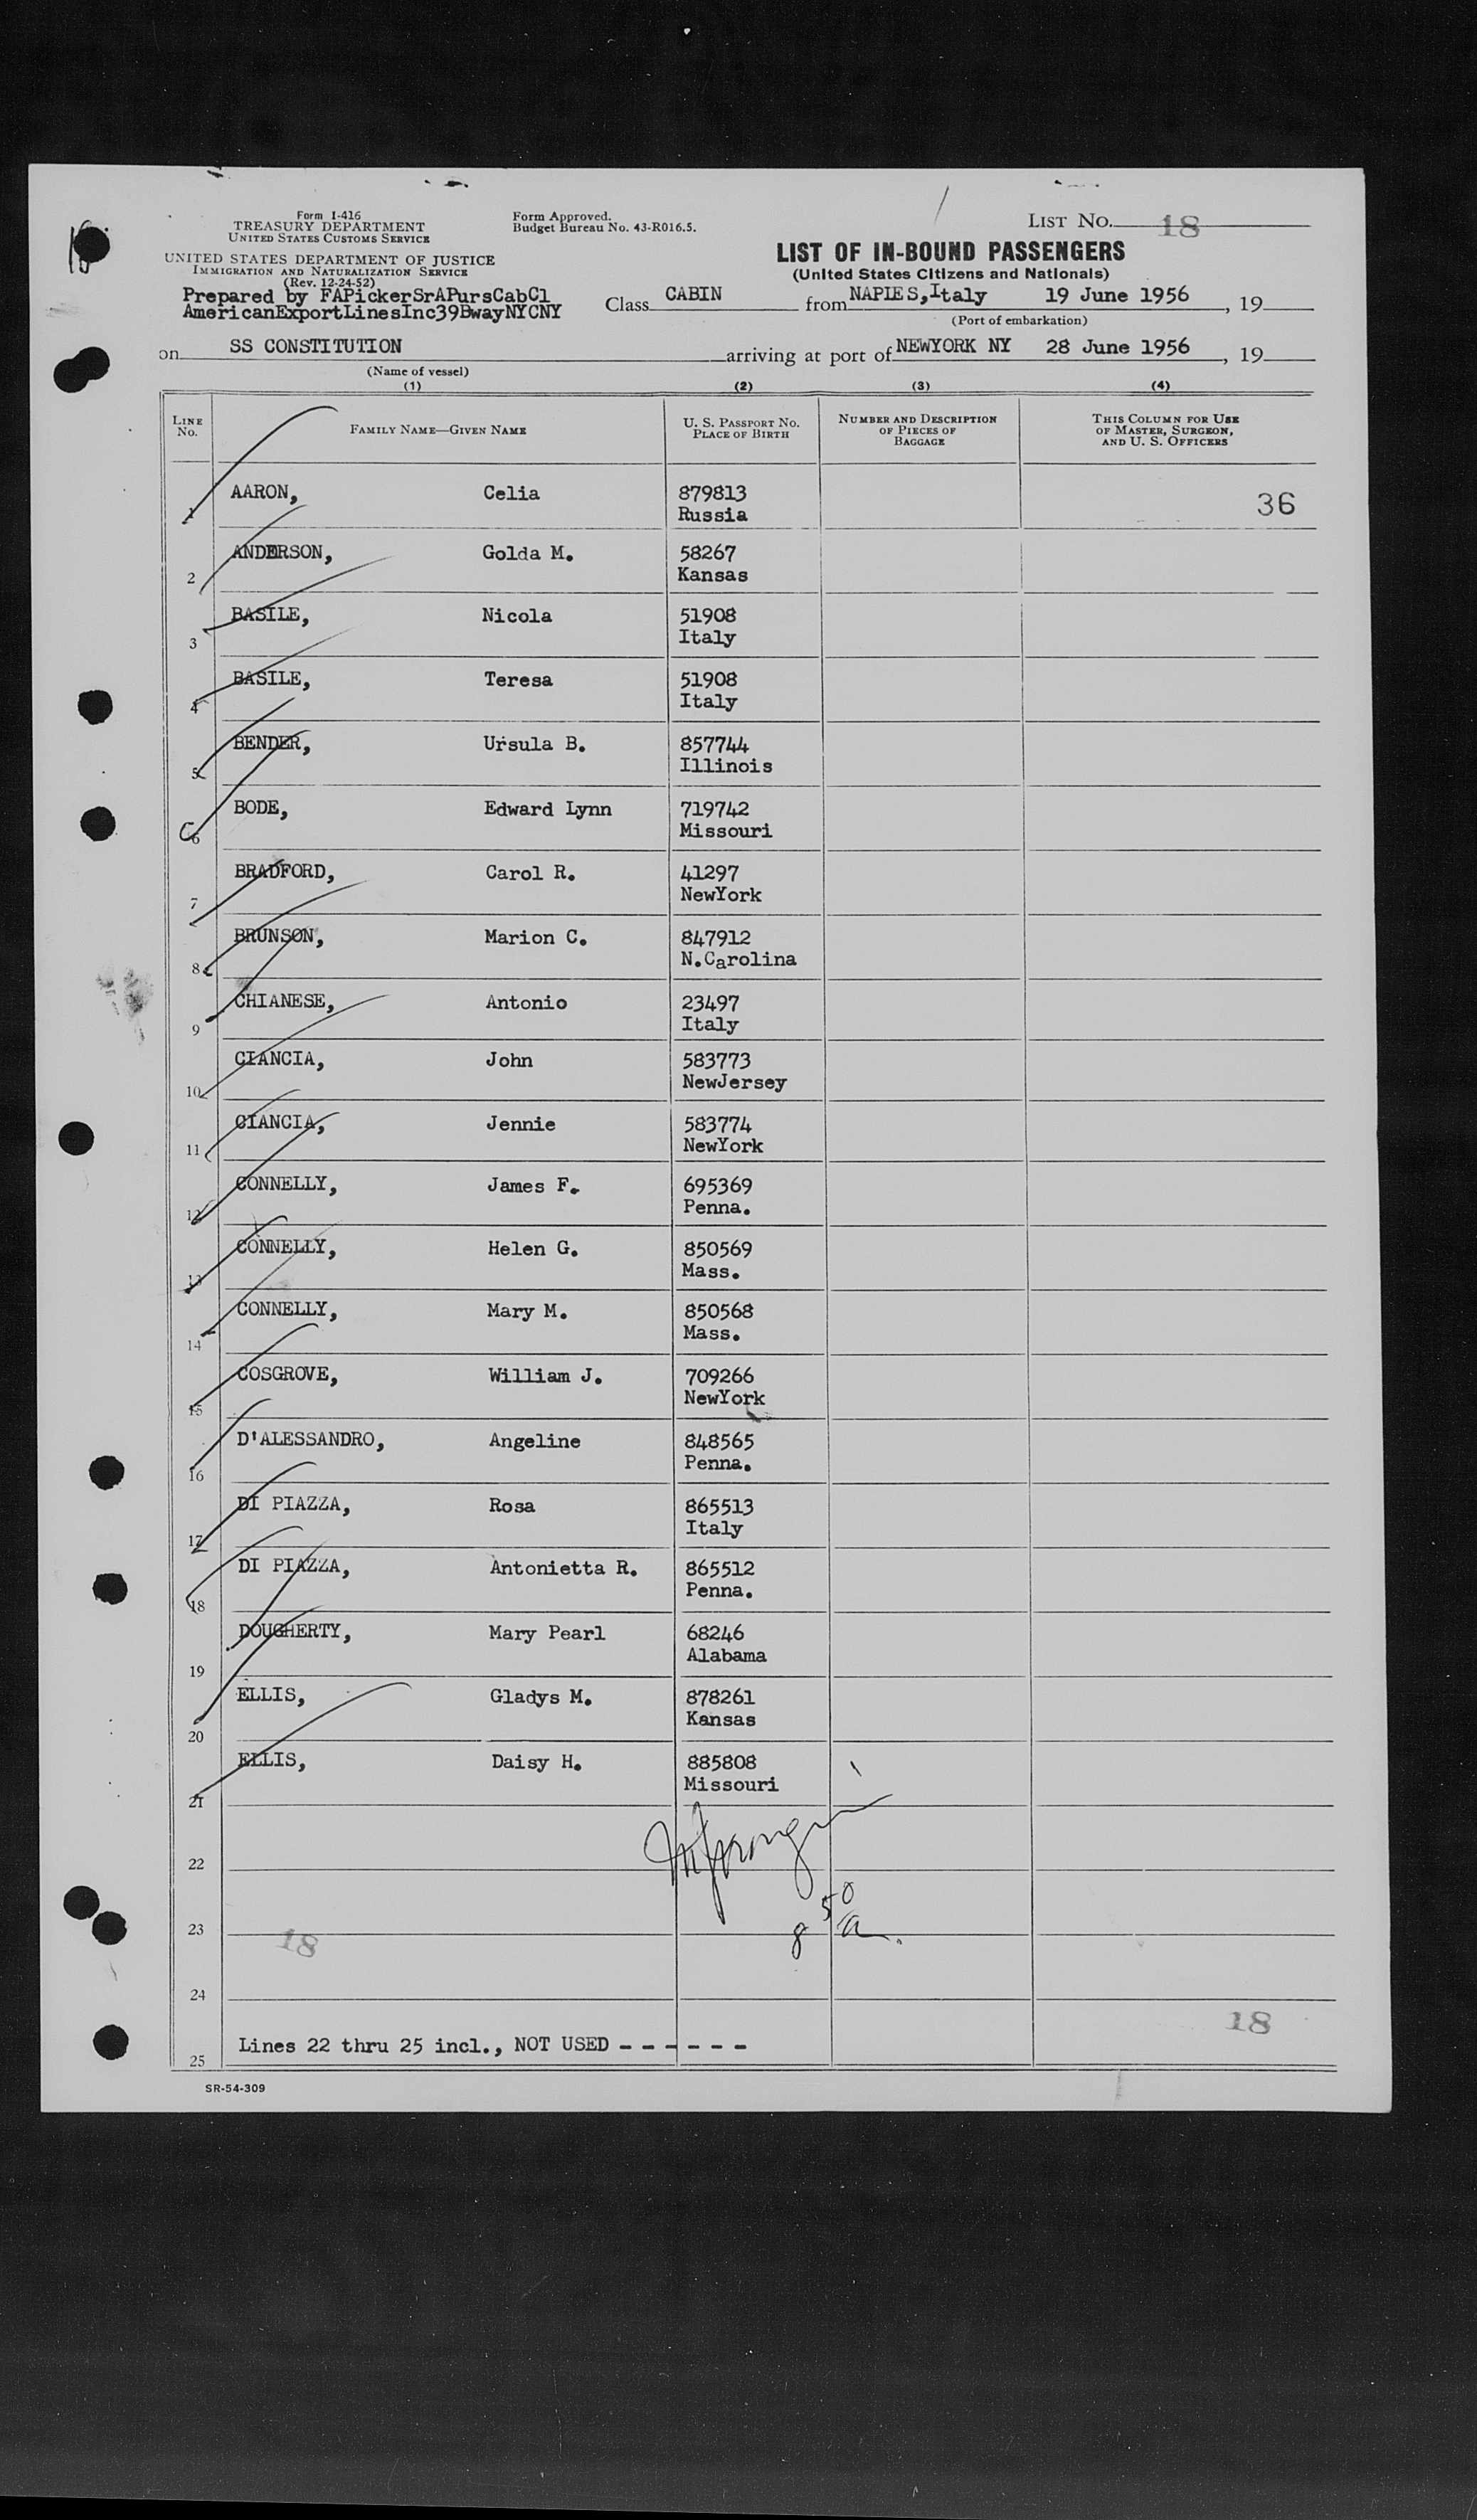 Form I-416
TREASURY DEPARTMENT
UNITED STATES CUSTOMS SERVICE
UNITED STATES DEPARTMENT OF JUSTICE
IMMIGRATION AND NATURALIZATION SERVICE
(Rev. 12-24-52)
Prepared by FAPickerSrAPursCabCl
AmericanExportLinesInc39BwayNYCNY
Form Approved.
Budget Bureau No. 43-R016.5.
LIST No. 18
LIST OF IN-BOUND PASSENGERS
(United States Citizens and Nationals)
Class CABIN from NAPLES,Italy 19 June 1956, 19
(Port of embarkation)
on SS CONSTITUTION arriving at port of NEWYORK NY 28 June 1956, 19
(Name of vessel)
(1) (2) (3) (4)
LINE No. FAMILY NAME—GIVEN NAME U. S. PASSPORT No. PLACE OF BIRTH NUMBER AND DESCRIPTION OF PIECES OF BAGGAGE THIS COLUMN FOR USE OF MASTER, SURGEON, AND U. S. OFFICERS
1 AARON, Celia 879813 36
Russia
2 ANDERSON, Golda M. 58267
Kansas
3 BASILE, Nicola 51908
Italy
4 BASILE, Teresa 51908
Italy
5 BENDER, Ursula B. 857744
Illinois
6 BODE, Edward Lynn 719742
Missouri
7 BRADFORD, Carol R. 41297
NewYork
8 BRUNSON, Marion C. 847912
N.Carolina
9 CHIANESE, Antonio 23497
Italy
10 CIANCIA, John 583773
NewJersey
11 CIANCIA, Jennie 583774
NewYork
12 CONNELLY, James F. 695369
Penna.
13 CONNELLY, Helen G. 850569
Mass.
14 CONNELLY, Mary M. 850568
Mass.
15 COSGROVE, William J. 709266
NewYork
16 D'ALESSANDRO, Angeline 848565
Penna.
17 DI PIAZZA, Rosa 865513
Italy
18 DI PIAZZA, Antonietta R. 865512
Penna.
19 DOUGHERTY, Mary Pearl 68246
Alabama
20 ELLIS, Gladys M. 878261
Kansas
21 ELLIS, Daisy H. 885808
Missouri
22
23 18 8 50 a.
24
18
25 Lines 22 thru 25 incl., NOT USED - - - - - -
SR-54-309